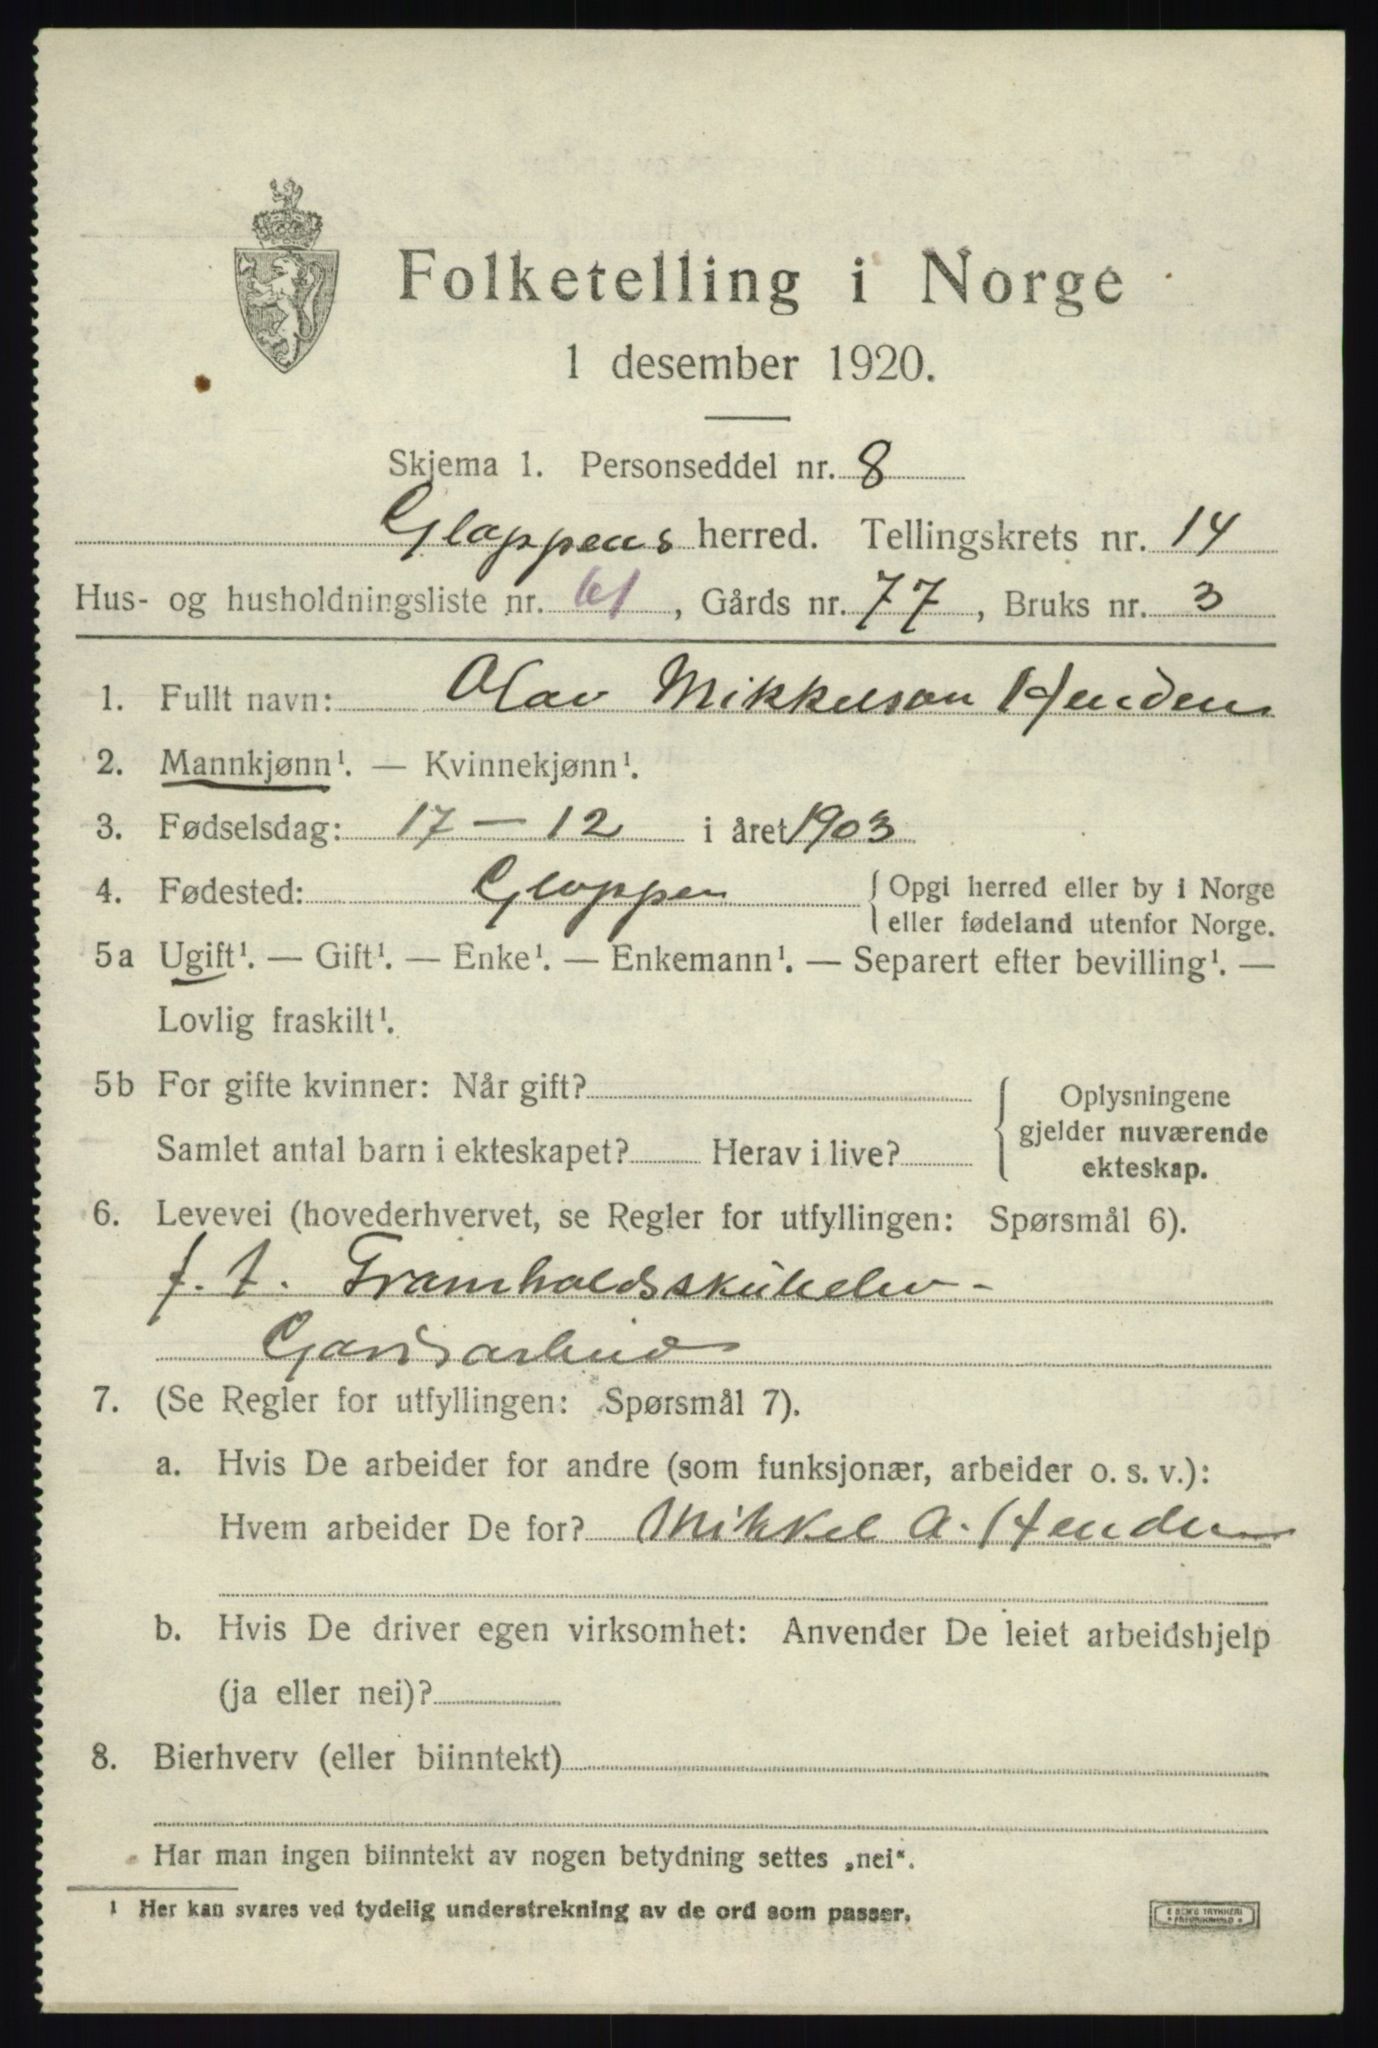 Folketelling i Norge
1 desember 1920.
Skjema 1. Personseddel nr. 8
Gloppens herred. Tellingskrets nr. 14
Hus- og husholdningsliste nr. 61, Gårds nr. 77, Bruks nr. 3
1. Fullt navn: Olav Mikkelson Henden
2. Mannkjønn¹. — Kvinnekjønn¹.
3. Fødselsdag: 17 — 12 i året 1903
4. Fødested: Gloppen {Opgi herred eller by i Norge
eller fødeland utenfor Norge.
5a Ugift¹. — Gift¹. — Enke¹. — Enkemann¹. — Separert efter bevilling¹. —
Lovlig fraskilt¹.
5b For gifte kvinner: Når gift?
Samlet antal barn i ekteskapet? Herav i live?
Oplysningene
gjelder nuværende
ekteskap.
6. Levevei (hovederhvervet, se Regler for utfyllingen: Spørsmål 6).
f. t. Framhaldsskuleelev -
Gardsarbeid
7. (Se Regler for utfyllingen: Spørsmål 7).
a. Hvis De arbeider for andre (som funksjonær, arbeider o. s. v.):
Hvem arbeider De for? Mikkel A. Henden
b. Hvis De driver egen virksomhet: Anvender De leiet arbeidshjelp
(ja eller nei)?
8. Bierhverv (eller biinntekt)
Har man ingen biinntekt av nogen betydning settes „nei“.
¹ Her kan svares ved tydelig understrekning av de ord som passer.